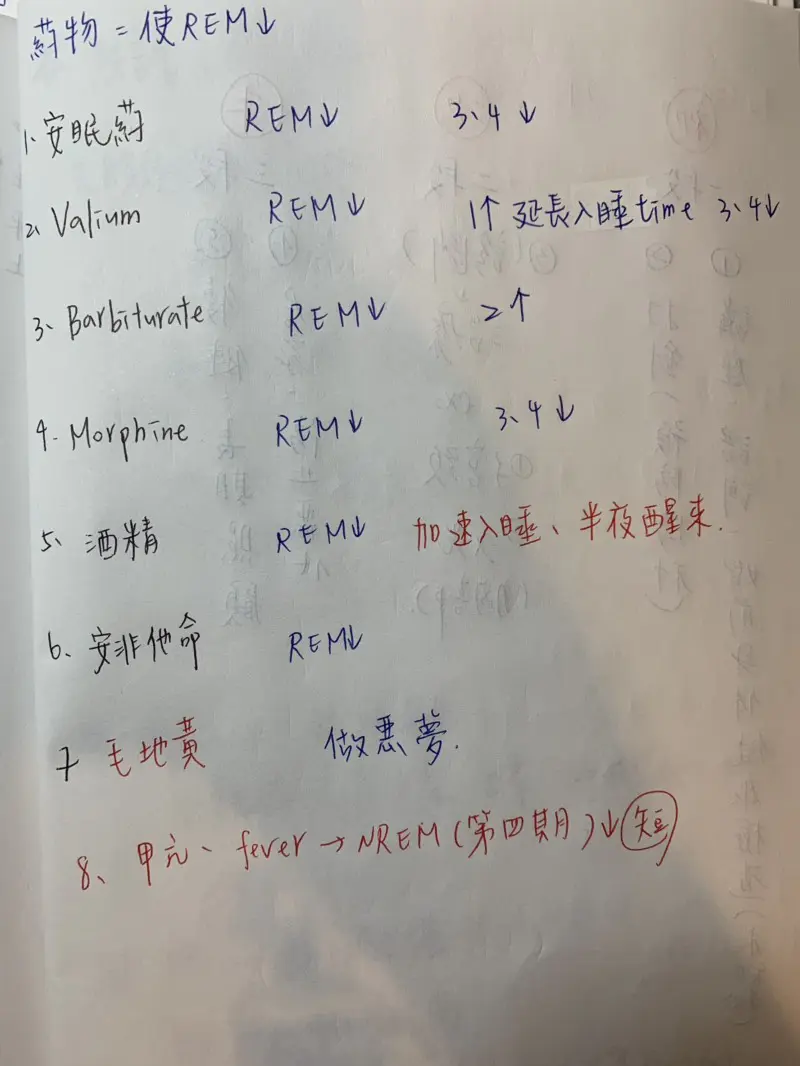 藥物=使REM↓
1、安眠藥 REM↓ 3、4↓
2、Valium REM↓ 1↑ 延長入睡time 3、4↓
3、Barbiturate REM↓ 2↑
4. Morphine REM↓ 3、4↓
5、酒精 REM↓ 加速入睡、半夜醒來.
6、安非他命 REM↓
7 毛地黃 做惡夢.
8、甲亢、fever→NREM(第四期)↓短